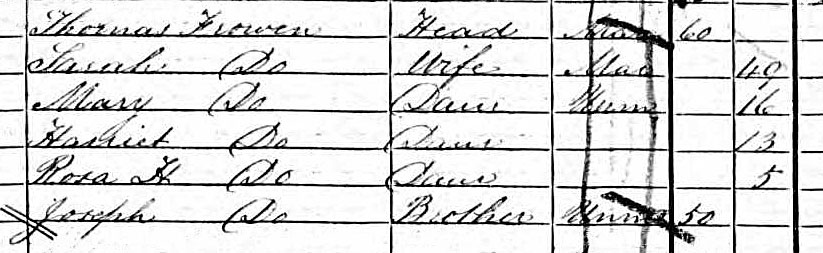 Thomas Frowen Head Mar 60
Sarah Do Wife Mar 49
Mary Do Daur Unm 16
Harriet Do Daur 13
Rosa H Do Daur 5
Joseph Do Brother Unm 50